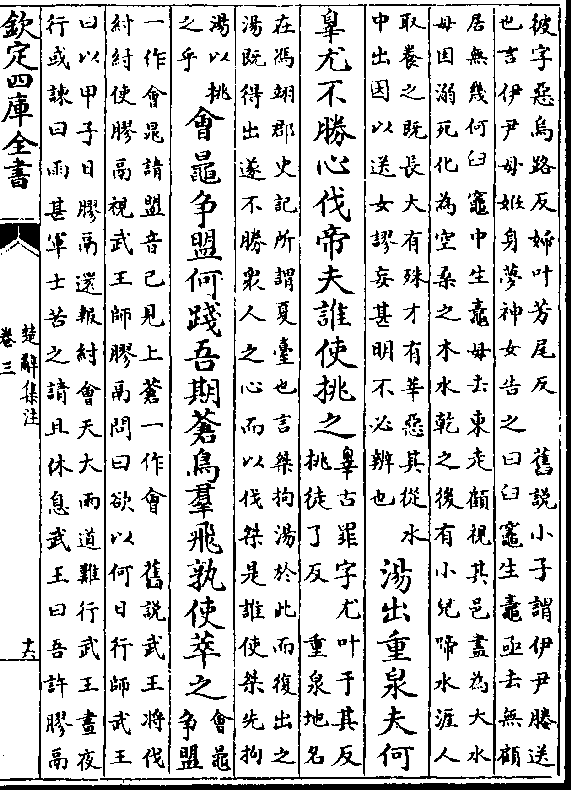 彼字惡烏路反婦叶芳尾反　舊說小子謂伊尹媵送
也言伊尹母姙身夢神女告之曰臼竈生鼃亟去無顧
居無幾何臼竈中生鼃母去東走顧視其邑盡為大水
母因溺死化為空桑之木水乾之後有小兒啼水涯人
取養之既長大有殊才有莘惡其從水
中出因以送女謬妄甚明不必辨也
湯出重泉夫何
辠尤不勝心伐帝夫誰使挑之
辠古罪字尤叶于其反
挑徒了反　重泉地名
在馮翊郡史記所謂夏臺也言桀拘湯於此而復出之
湯既得出遂不勝衆人之心而以伐桀是誰使桀先拘
湯以挑
之乎
會鼂争盟何踐吾期蒼鳥羣飛孰使萃之
會鼂
争盟
一作會晁請盟音已見上蒼一作會　舊說武王將伐
紂紂使膠鬲視武王師膠鬲問曰欲以何日行師武王
曰以甲子日膠鬲還報紂會天大雨道難行武王晝夜
行或諫曰雨甚軍士苦之請且休息武王曰吾許膠鬲
欽定四庫全書
楚辭集注
卷三
十六